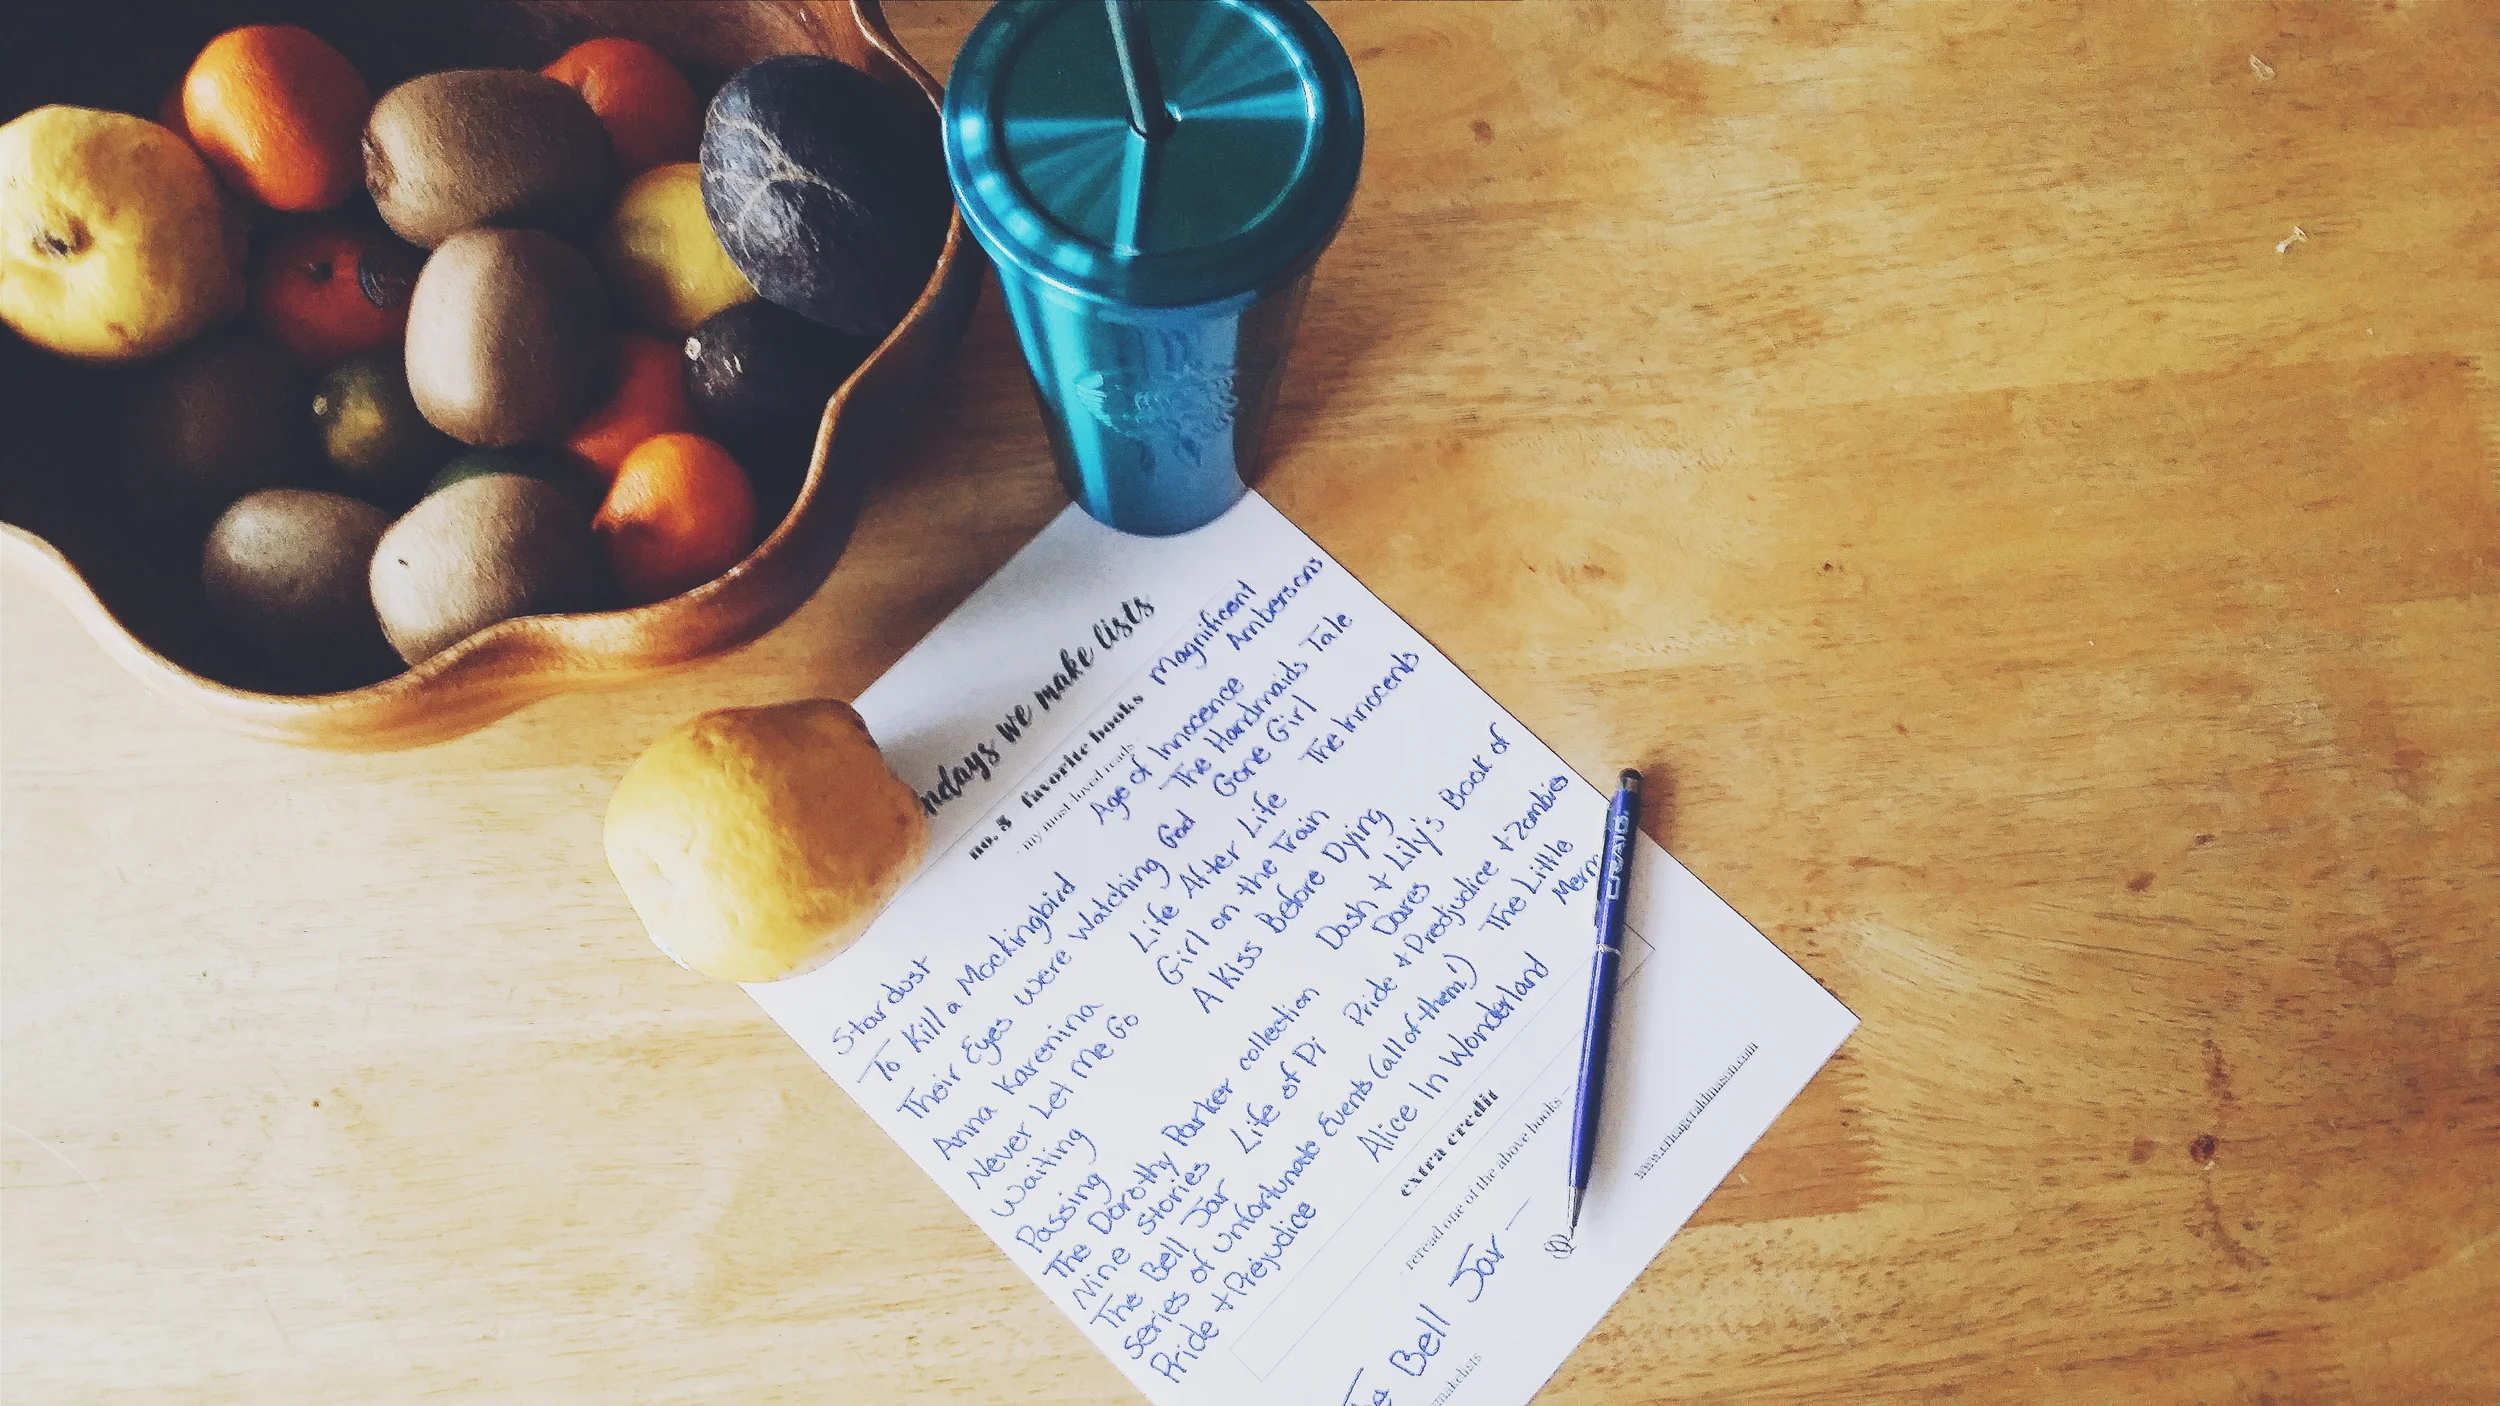 we make lists
no. 5 favorite books
my most loved reads
Magnificent
Ambersons
Age of Innocence
The Handmaids Tale
Gone Girl
The Innocents
Stardust
To Kill a Mockingbird
Their Eyes were watching God
Anna Karenina
Never Let me Go
Waiting
Passing
The Dorothy Parker collection
Nine Stories
The Bell Jar
Series of Unfortunate Events (all of them!)
Pride + Prejudice
Life After Life
Girl on the Train
A Kiss Before Dying
Dash + Lily's Book of
Dares
Life of Pi
Pride + Predjudice + Zombies
The Little
Alice In Wonderland
extra credit
reread one of the above books
Bell Jar –